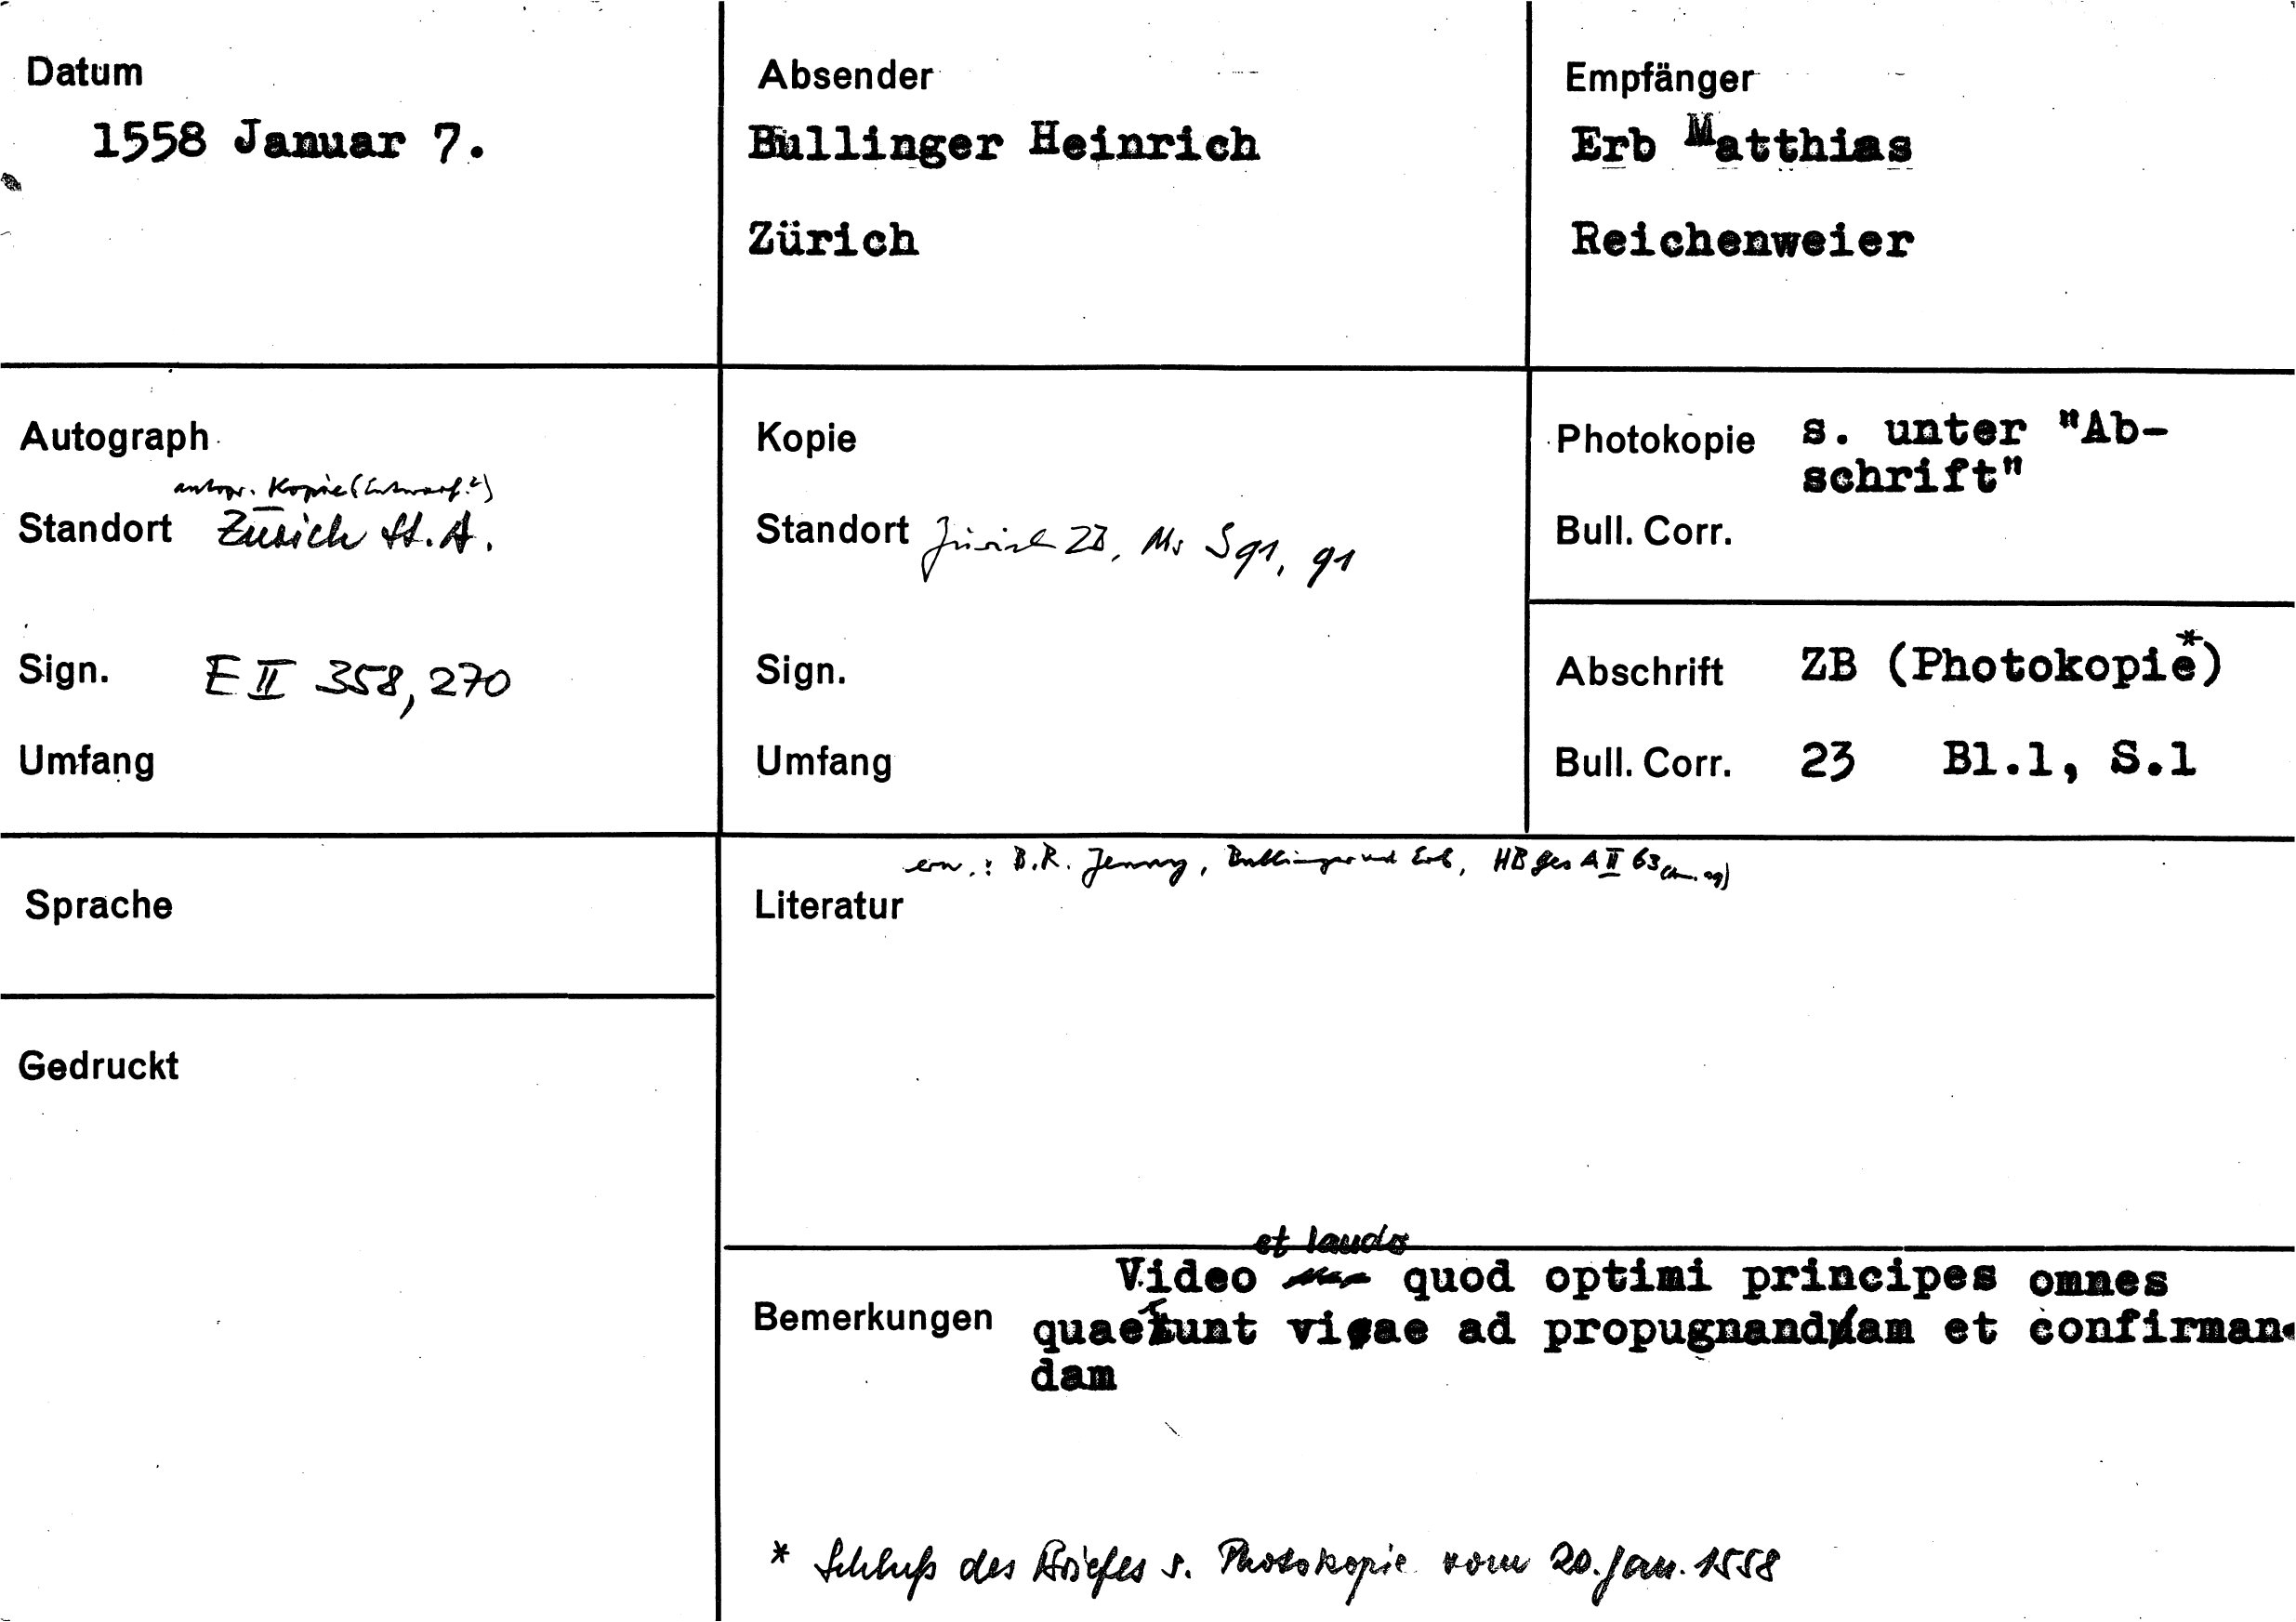 Datum
1558 Januar 7.
Absender
Bullinger Heinrich
Zürich
Empfänger
Erb Matthias
Reichenweier
Autograph
autogr. Kopie (Entwurf?)
Standort Zürich St.A.
Sign. E II 358, 270
Umfang
Kopie
Standort Zürich ZB, Ms S 91, 91
Sign.
Umfang
Photokopie s. unter "Ab-
schrift"
Bull. Corr.
Abschrift ZB (Photokopie*)
Bull. Corr. 23 Bl.1, S.1
Sprache
Gedruckt
erw.: B.R. Jenny, Bullinger und Erb, HBGes A II 63
Literatur
et laudo
Video quod optimi principes omnes
Bemerkungen quaerunt viae ad propugnandam et confirman-
dam
* Schluß des Briefes s. Photokopie vom 20. Jan. 1558